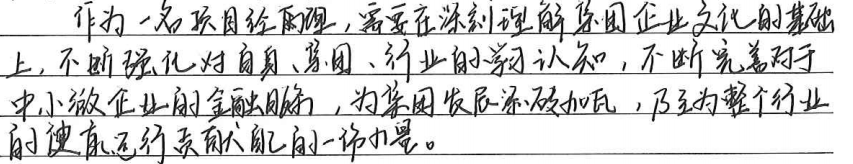 作为一名项目经理,需要在深刻理解集团企业文化的基础
上,不断强化对自身、集团、行业的学习认知,不断完善对于
中小微企业的金融服务,为集团发展添砖加瓦,乃至为整个行业
的健康运行贡献自己的一份力量。